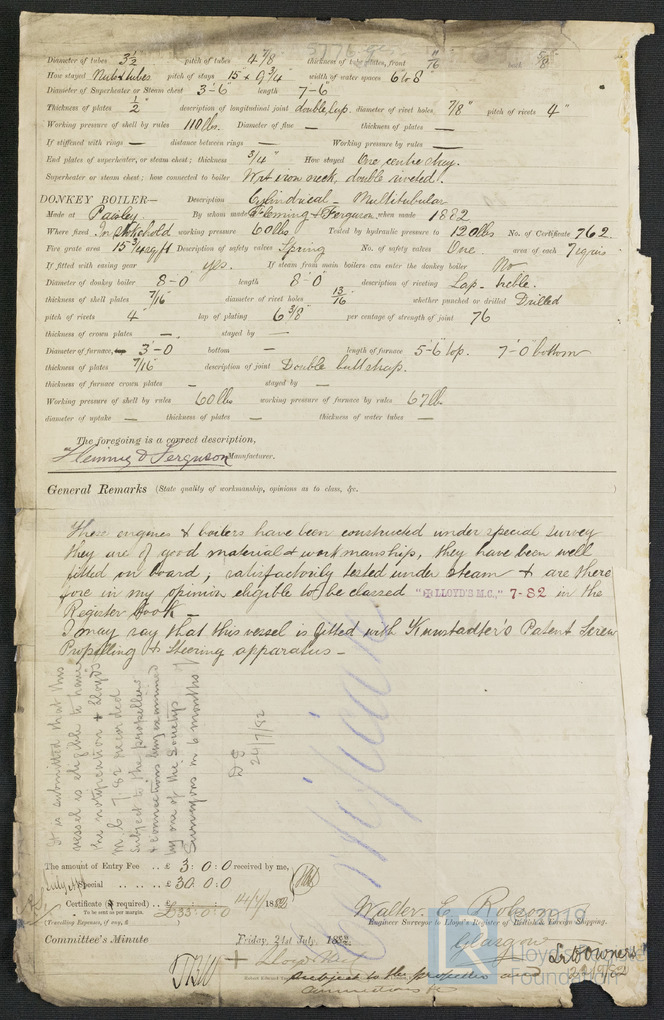 Diameter of tubes 3½ pitch of tubes 4⅞ thickness of tube plates, front /16 back 5/8
How stayed Nuts & tubes pitch of stays 15" x 9¾" width of water spaces 6 to 8
Diameter of Superheater or Steam chest 3'-6" length 7'-6"
Thickness of plates ½" description of longitudinal joint double lap. diameter of rivet holes 7/8" pitch of rivets 4"
Working pressure of shell by rules 110 lbs. Diameter of flue — thickness of plates —
If stiffened with rings — distance between rings — Working pressure by rules —
End plates of superheater, or steam chest; thickness 3/4" How stayed One centre stay.
Superheater or steam chest; how connected to boiler Wrt iron neck, double riveted.
DONKEY BOILER— Description Cylindrical — Multitubular
Made at Paisley. By whom made Fleming & Ferguson when made 1882
Where fixed In Stokehold working pressure 60 lbs Tested by hydraulic pressure to 120 lbs No. of Certificate 762
Fire grate area 15¾ sq ft Description of safety valves Spring No. of safety valves One area of each 7
If fitted with easing gear yes. If steam from main boilers can enter the donkey boiler No
Diameter of donkey boiler 8-0 length 8'-0" description of riveting Lap - treble.
thickness of shell plates 7/16" diameter of rivet holes 13/16" whether punched or drilled Drilled
pitch of rivets 4" lap of plating 6⅜" per centage of strength of joint 76
thickness of crown plates — stayed by —
Diameter of furnace, 3'-0 bottom — length of furnace 5'-6" top. 7'-0" bottom
thickness of plates 7/16" description of joint Double butt strap.
thickness of furnace crown plates — stayed by —
Working pressure of shell by rules 60 lbs working pressure of furnace by rules 67 lbs
diameter of uptake — thickness of plates — thickness of water tubes —
The foregoing is a correct description,
Fleming & Ferguson Manufacturer.
General Remarks (State quality of workmanship, opinions as to class, &c. )
These engines & boilers have been constructed under special survey
they are of good material & workmanship, they have been well
fitted on board, satisfactorily tested under steam & are there
fore in my opinion eligible to be classed "✠LLOYD'S M.C.," 7-82 in the
Register Book —
I may say that this vessel is fitted with Kunstadter's Patent Screw
Propelling & Steering apparatus —
It is submitted that this
vessel is eligible to have
the notification + Lloyds
M C 7.82 recorded
subject to the propellers
& connections being examined
by one of the Societys
Surveyors in 6 months
24/7/82
Certificate
The amount of Entry Fee .. £ 3 : 0 : 0 received by me,
Special .. .. £ 30 : 0 : 0
Certificate (if required) .. £ 14/7/1882
To be sent as per margin. £33:0:0
(Travelling Expenses, if any, £ )
Walter C. Robson
Engineer Surveyor to Lloyd's Register of British & Foreign Shipping.
Glasgow
Committee's Minute Friday, 21st July, 1882.
+ Lloyds
subject to the propeller and
connections
Lr to owners
© 2019
Lloyd's Register
Foundation